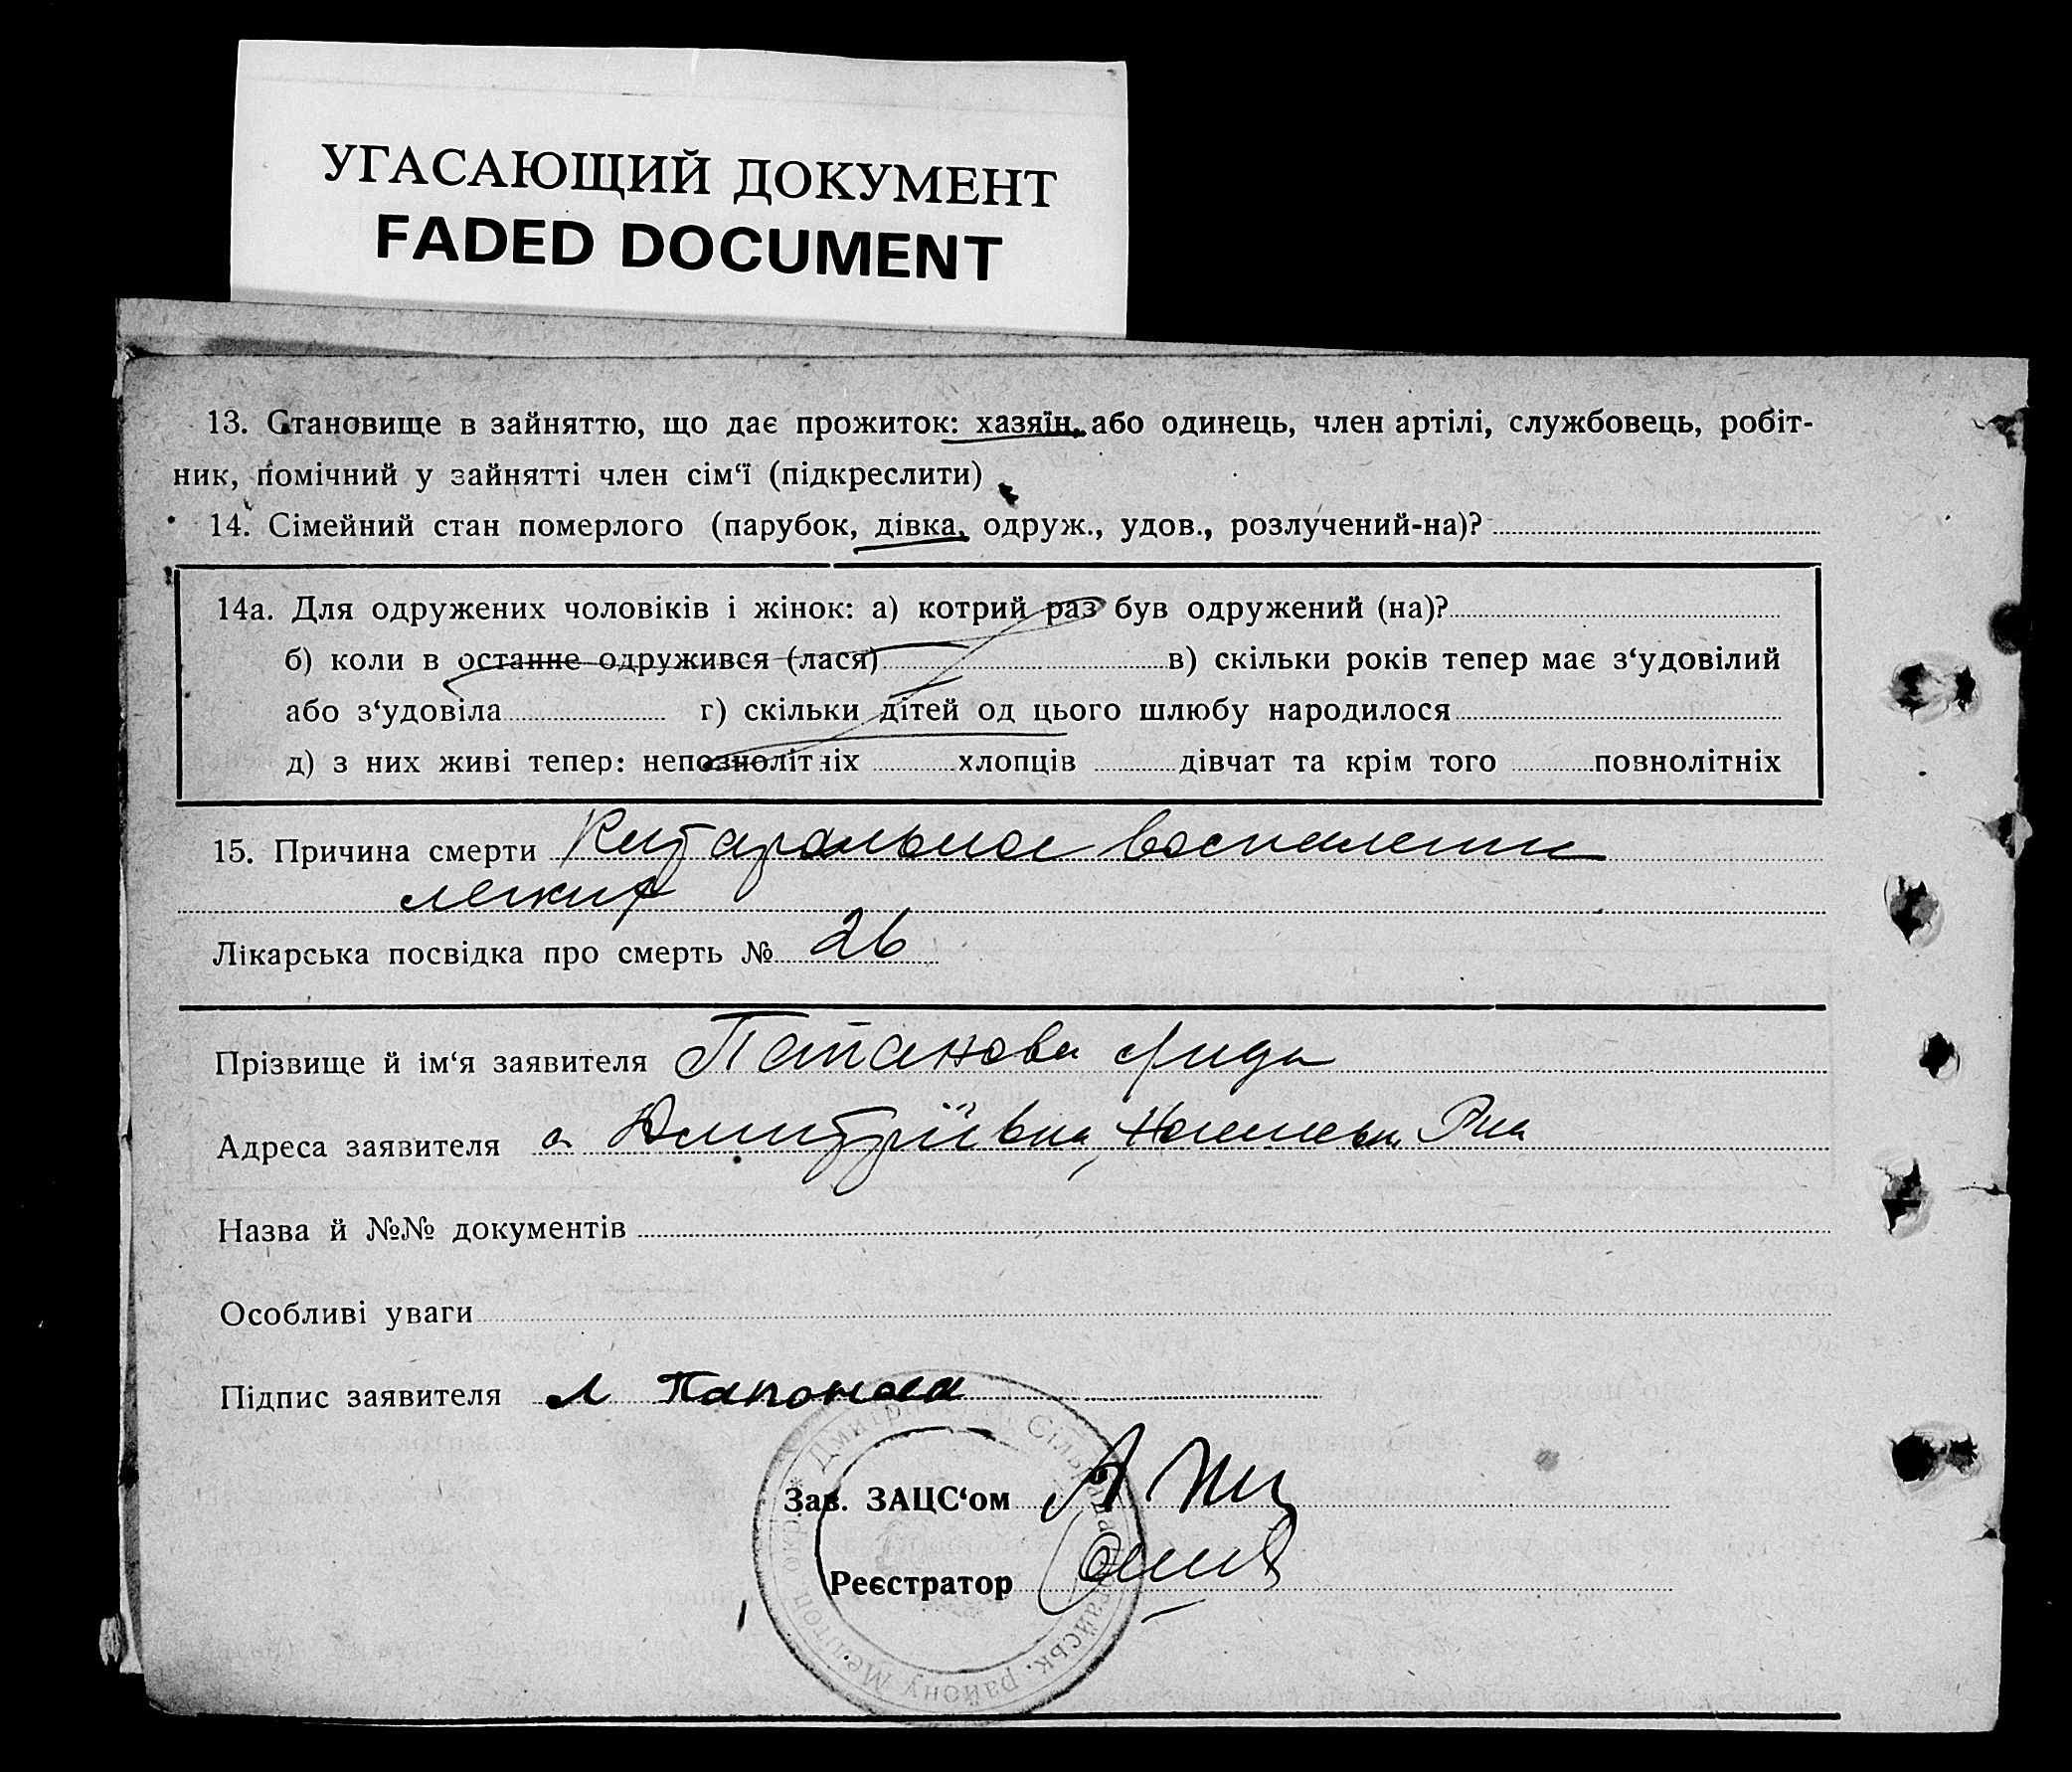 УГАСАЮЩИЙ ДОКУМЕНТ
FADED DOCUMENT
13. Становище в зайняттю, що дає прожиток: хазяїн, або одинець, член артілі, службовець, робіт-
ник, помічний у зайнятті член сім‘ї (підкреслити)
14. Сімейний стан померлого (парубок, дівка, одруж., удов., розлучений-на)?
14а. Для одружених чоловіків і жінок: а) котрий раз був одружений (на)?
б) коли в останнє одружився (лася) в) скільки років тепер має з‘удовілий
або з‘удовіла г) скільки дітей од цього шлюбу народилося
д) з них живі тепер: неповнолітніх хлопців дівчат та крім того повнолітніх
15. Причина смерти Катаральное воспаление
легких
Лікарська посвідка про смерть № 26
Прізвище й ім‘я заявителя
Адреса заявителя с. Дмитріївка,
Назва й №№ документів
Особливі уваги
Підпис заявителя
Зав. ЗАЦС‘ом
Реєстратор